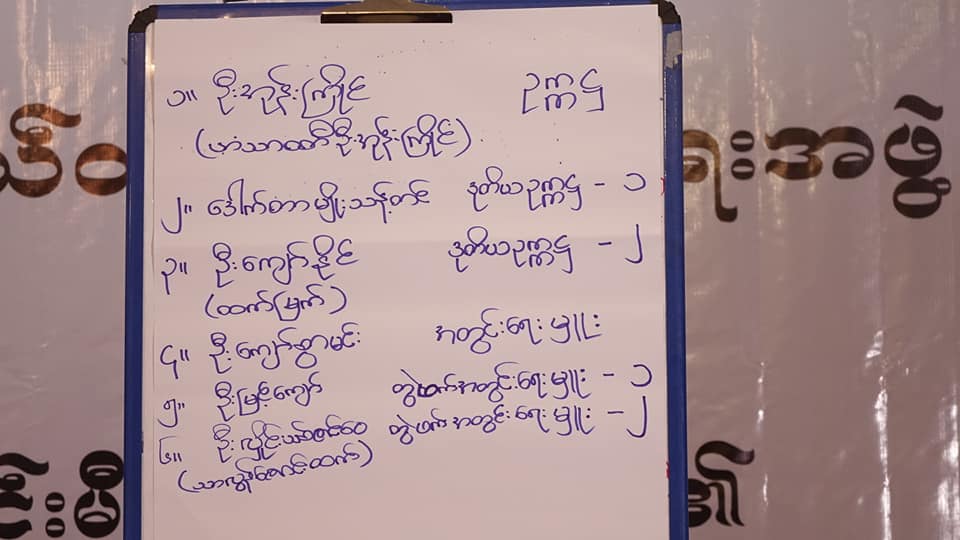 ၁။ ဦးအုန်းကြိုင် ဥက္ကဋ္ဌ
(ဟံသာဝတီဦးအုန်းကြိုင်)
၂။ ဒေါက်တာမျိုးသန့်တင် ဒုတိယဥက္ကဋ္ဌ - ၁
၃။ ဦးကျော်နိုင် ဒုတိယဥက္ကဋ္ဌ - ၂
(ထက်မြက်)
၄။ ဦးကျော်စွာမင်း အတွင်းရေးမှူး
၅။ ဦးမြင့်ကျော် တွဲဖက်အတွင်းရေးမှူး - ၁
၆။ ဦးလှိုင် တွဲဖက်အတွင်းရေးမှူး - ၂